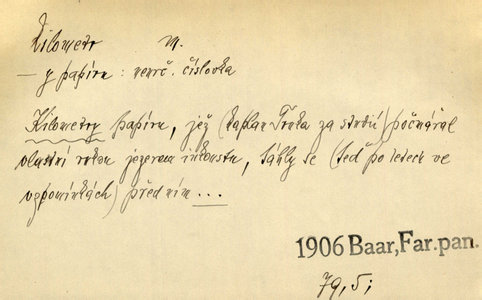 Kilometr m.
— y papíru: neurč. číslovka
Kilometry papíru, jež (kaplan Trnka za studií) počmáral
vlastní rukou jezerem inkoustu, táhly se (teď po letech ve
vzpomínkách) před ním ...
1906 Baar, Far. pan.
79, 5;